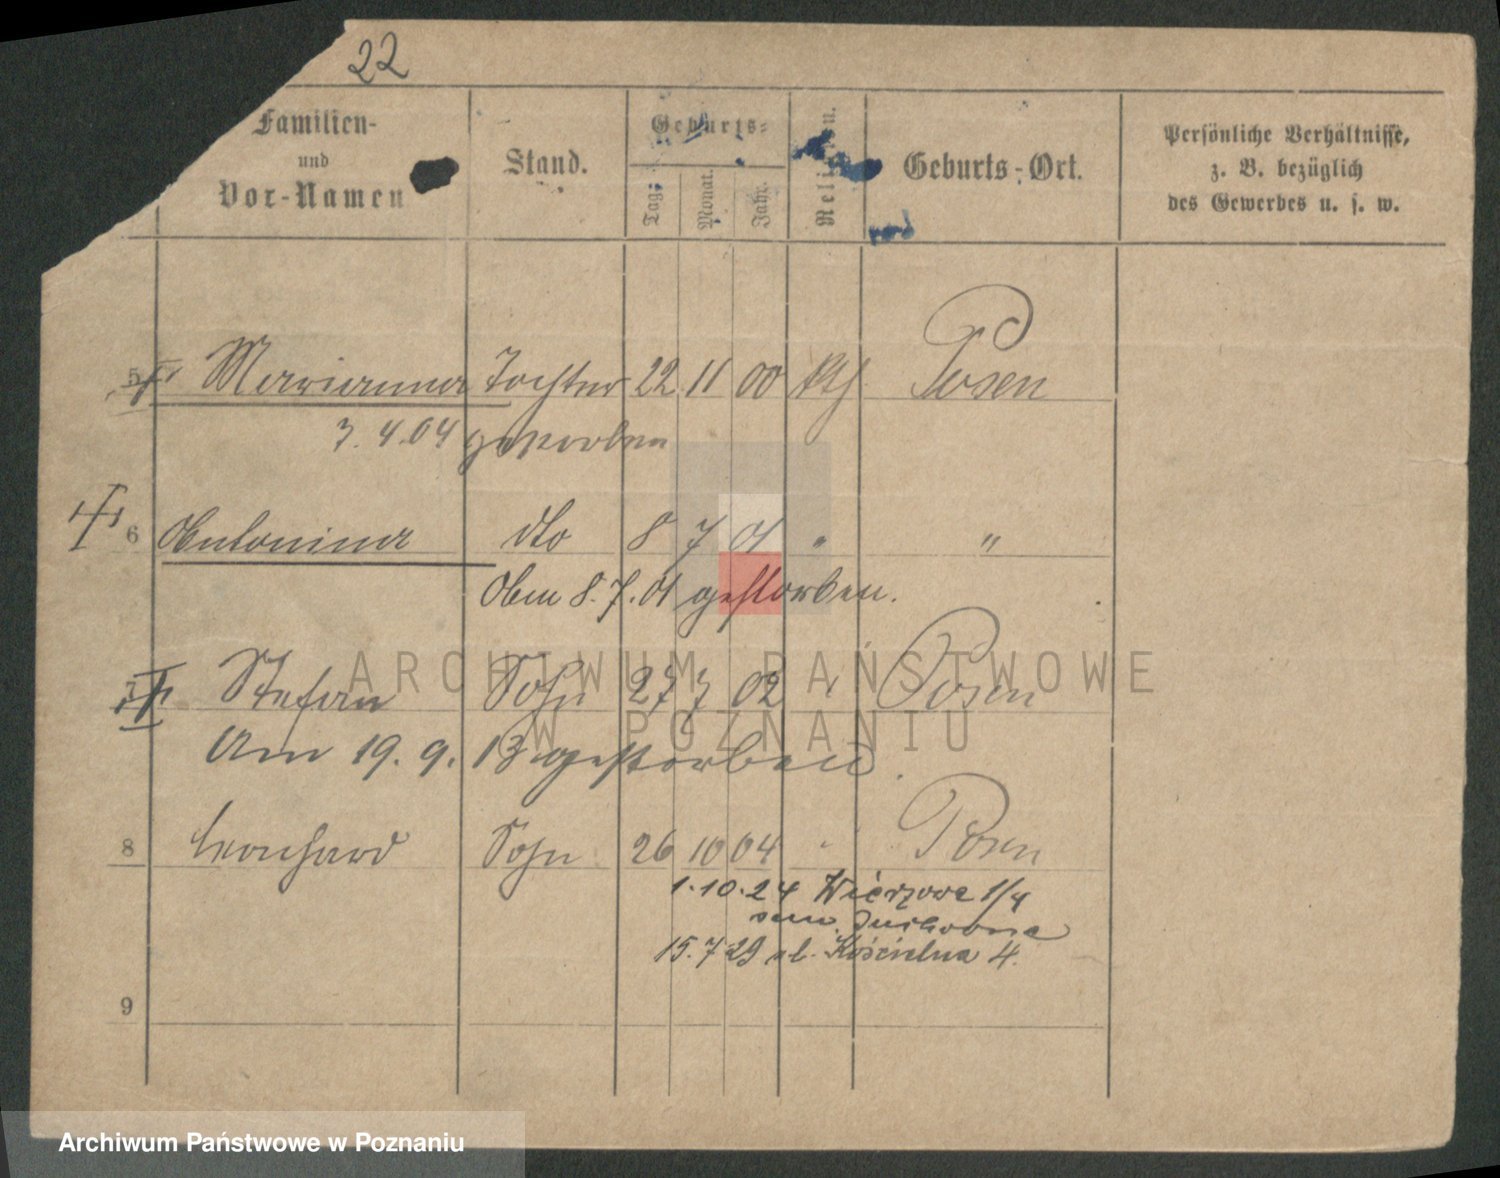 22
Familien-
und
Vor-Namen
Stand.
Geburts-
Tag:
Monat.
Jahr.
Religion.
Geburts-Ort.
Persönliche Verhältnisse,
z. B. bezüglich
des Gewerbes u. s. w.
5 Marianna Tochter 22 11 00 kth Posen
3. 4. 04 gestorben
6 Antonina dto 8 7 01 " "
Am 8. 7. 01 gestorben.
7 Stefan Sohn 27 7 02 " Posen
Am 19. 9. 13 gestorben.
8 Leonhard Sohn 26 10 04 " Posen
1. 10. 24 1/4
15. 7 29 ul. Kościelna 4.
9
ARCHIWUM PAŃSTWOWE
W POZNANIU
Archiwum Państwowe w Poznaniu